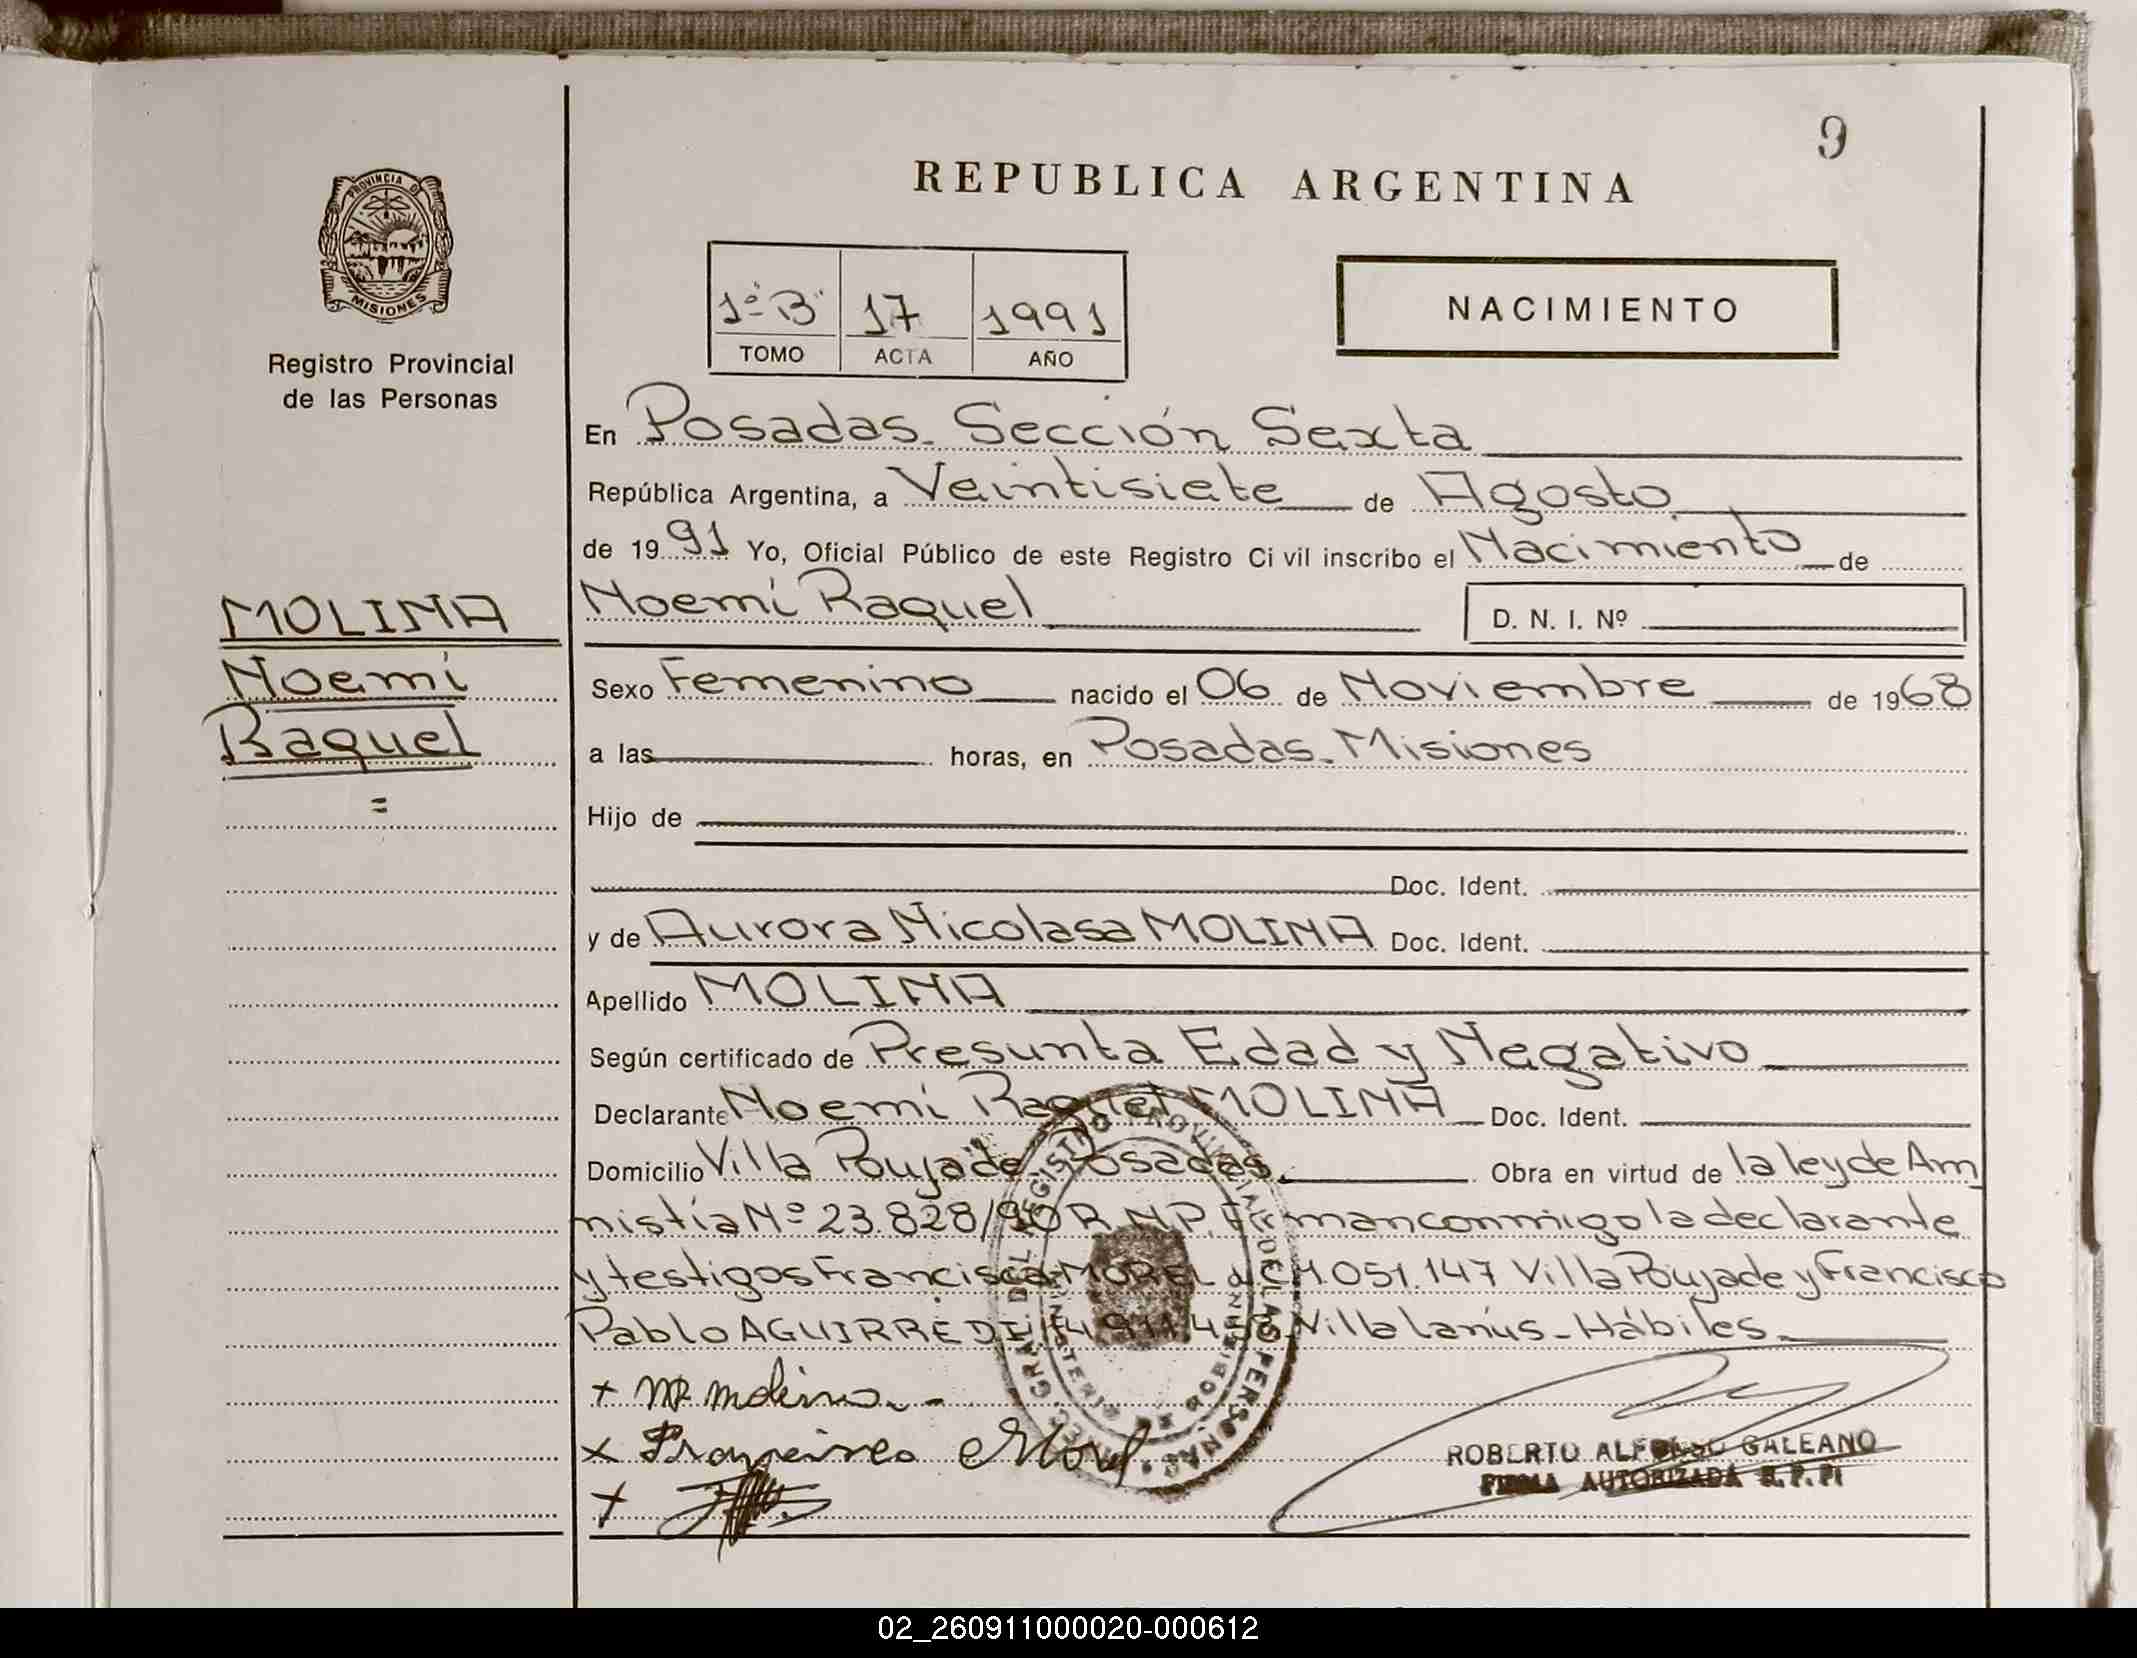 9
REPUBLICA ARGENTINA
PROVINCIA D
MISIONES
Registro Provincial
de las Personas
1º B 17 1991
TOMO ACTA AÑO
NACIMIENTO
En Posadas. Sección Sexta
República Argentina, a Veintisiete de Agosto
de 1991 Yo, Oficial Público de este Registro Civil inscribo el Nacimiento de
MOLINA
Noemí
Raquel
=
Noemí Raquel D. N. I. Nº
Sexo Femenino nacido el 06 de Noviembre de 1968
a las horas, en Posadas. Misiones
Hijo de
Doc. Ident.
y de Aurora Nicolasa MOLINA Doc. Ident.
Apellido MOLINA
Según certificado de Presunta Edad y Negativo
Declarante Noemí Raquel MOLINA Doc. Ident.
Domicilio Villa Poujade Posadas. Obra en virtud de la ley de Am
nistía Nº 23.828/90 R.N.P. Firman conmigo la declarante
y testigos Francisca MOREL 051.147 Villa Poujade y Francisco
Pablo AGUIRRE Villa Lanús - Hábiles.
+ NR Molina
x Francisca Morel
+
ROBERTO ALFONSO GALEANO
FIRMA AUTORIZADA R. P. P.
02_260911000020-000612